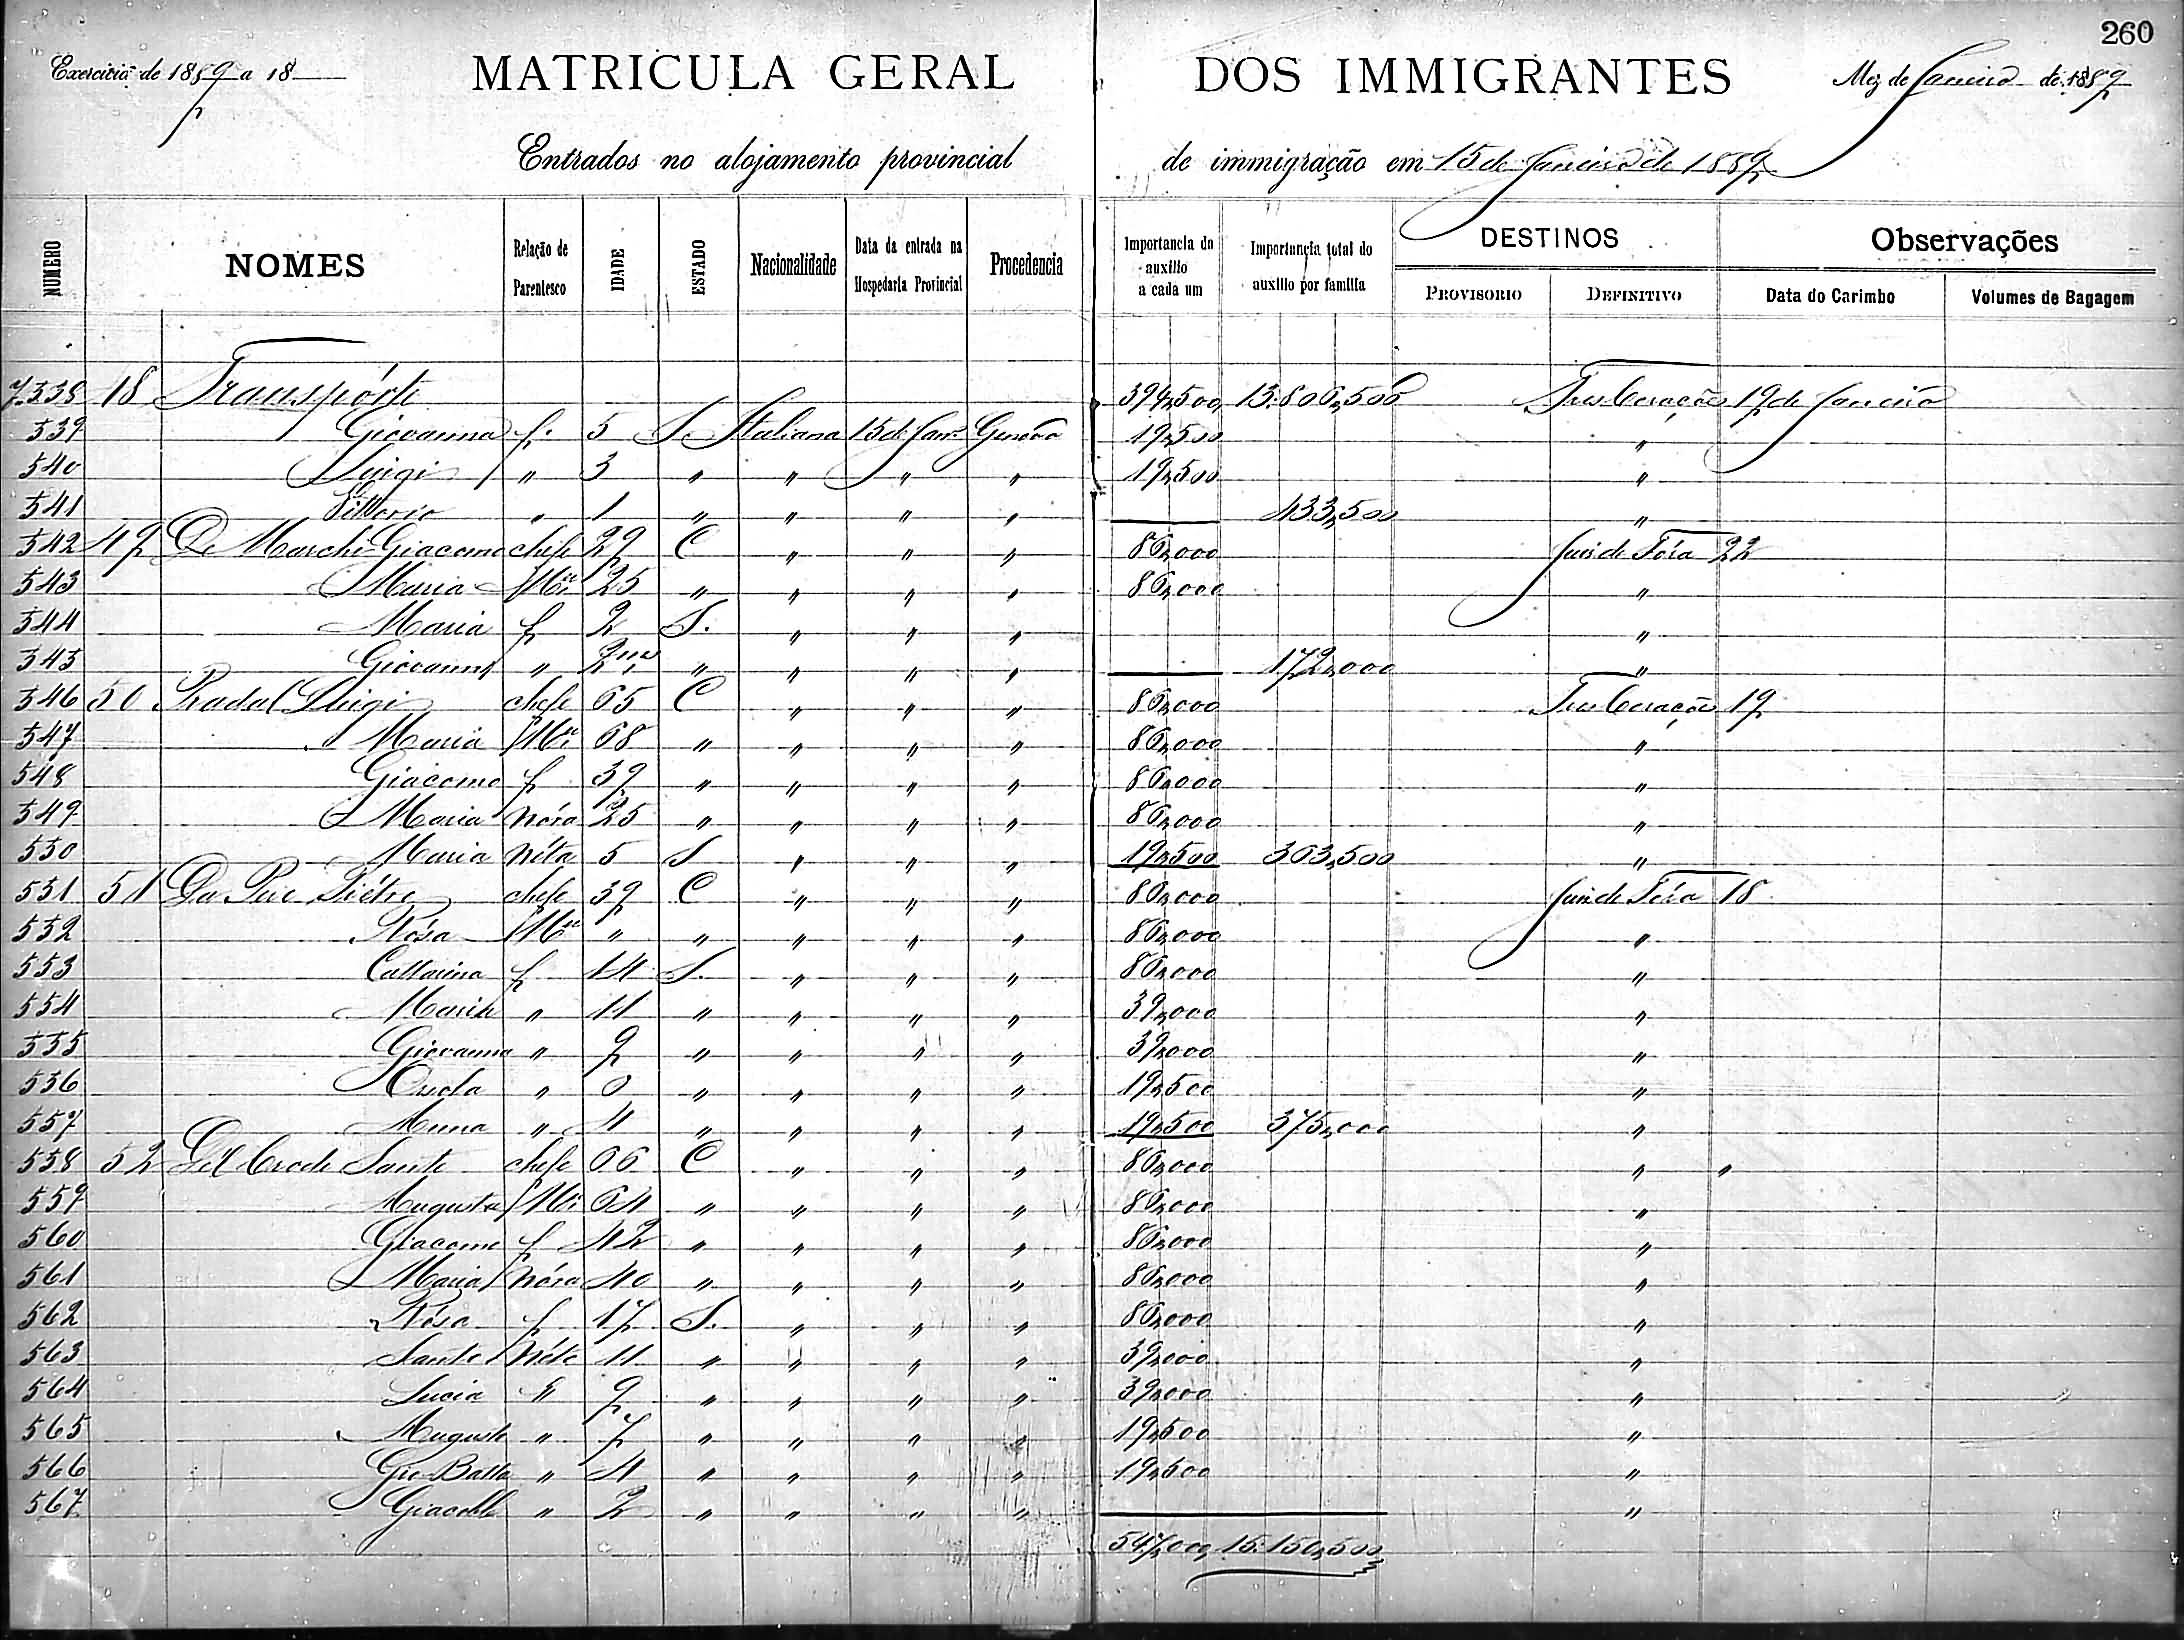 260
Exercicio de 1889 a 18
MATRICULA GERAL DOS IMMIGRANTES
Mez de Janeiro de 1889
Entrados no alojamento provincial de immigração em 15 de Janeiro de 1889
NUMERO NOMES Relação de Parentesco IDADE ESTADO Nacionalidade Data da entrada na Hospedaria Provincial Procedencia Importancia do auxilio a cada um Importancia total do auxilio por familia DESTINOS PROVISORIO DEFINITIVO Observações Data do Carimbo Volumes de Bagagem
7.538 48 Transpórte 394,500 13:806,500 Tres Corações 19 de Janeiro
539 Giovanna f. 5 S. Italiana 15 de Jan. Genova 19,500 "
540 Luigi " 3 " " " " 19,500 "
541 Vittorio " 1 " " " " 433,500 "
542 49 De Marchi Giacomo chefe 29 C " " " 86,000 Juiz de Fóra 22
543 Maria Mer 25 " " " " 86,000 "
544 Maria f 2 S. " " " "
545 Giovanni " 2m " " " " 172,000 "
546 50 Pradal Luigi chefe 65 C " " " 86,000 Tres Corações 19
547 Maria Mer 68 " " " " 86,000 "
548 Giacomo f 39 " " " " 86,000 "
549 Maria Nóra 25 " " " " 86,000 "
550 Maria Néta 5 S " " " 19,500 363,500 "
551 51 Da Piétro chefe 39 C " " " 86,000 Juiz de Fóra 18
552 Rósa Mer " " " " " 86,000 "
553 Cattarina f 14 S. " " " 86,000 "
554 Maria " 11 " " " " 39,000 "
555 Giovanna " 9 " " " " 39,000 "
556 " 6 " " " " 19,500 "
557 Anna " 4 " " " " 19,500 375,000 "
558 52 Sante chefe 66 C " " " 86,000 " "
559 Augusta Mer 64 " " " " 86,000 "
560 Giacomo f 42 " " " " 86,000 "
561 Maria Nóra 40 " " " " 86,000 "
562 Rósa f 17 S. " " " 86,000 "
563 Sante Néto 11 " " " " 39,000 "
564 Lucia " 9 " " " " 39,000 "
565 Augusto " 7 " " " " 19,500 "
566 Gio Batta " 4 " " " " 19,500 "
567 " 2 " " " " "
547,000 15:150,500